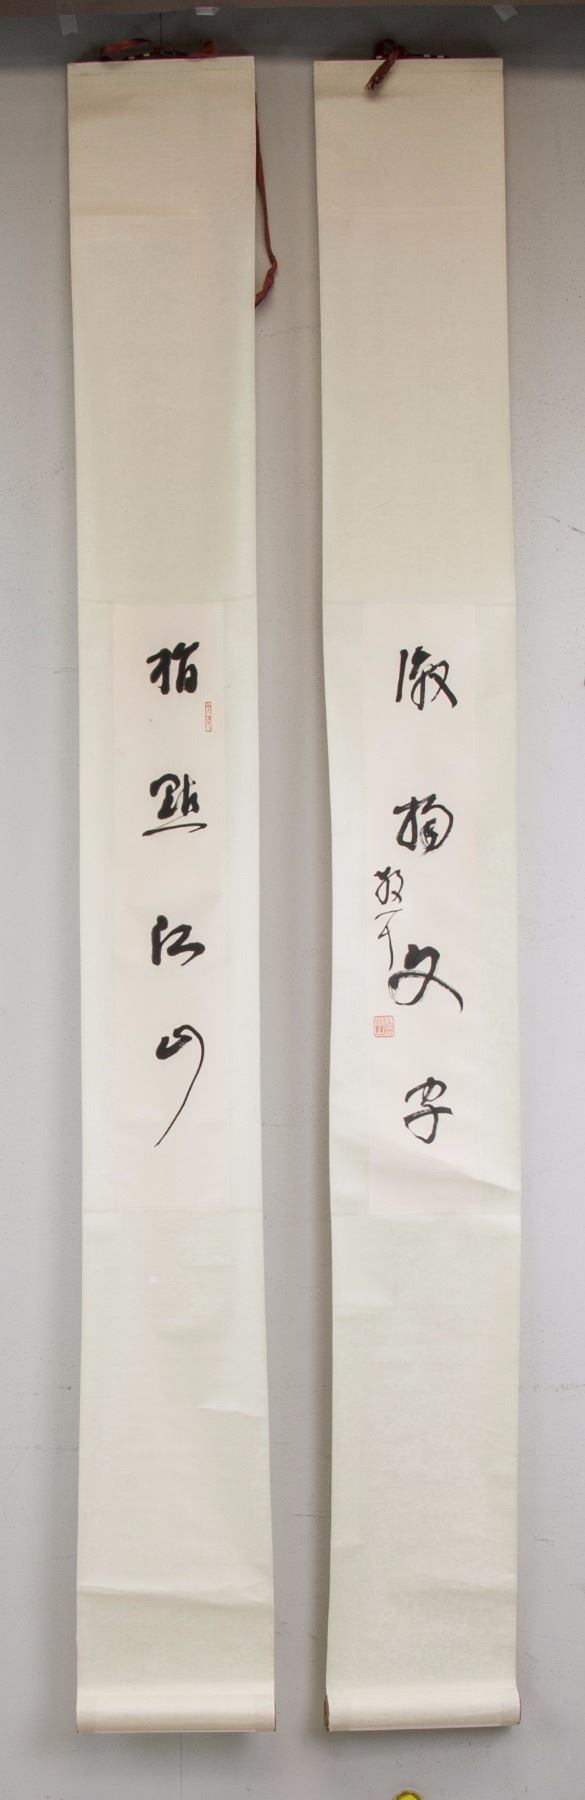 指點江山
激揚文字
敬平